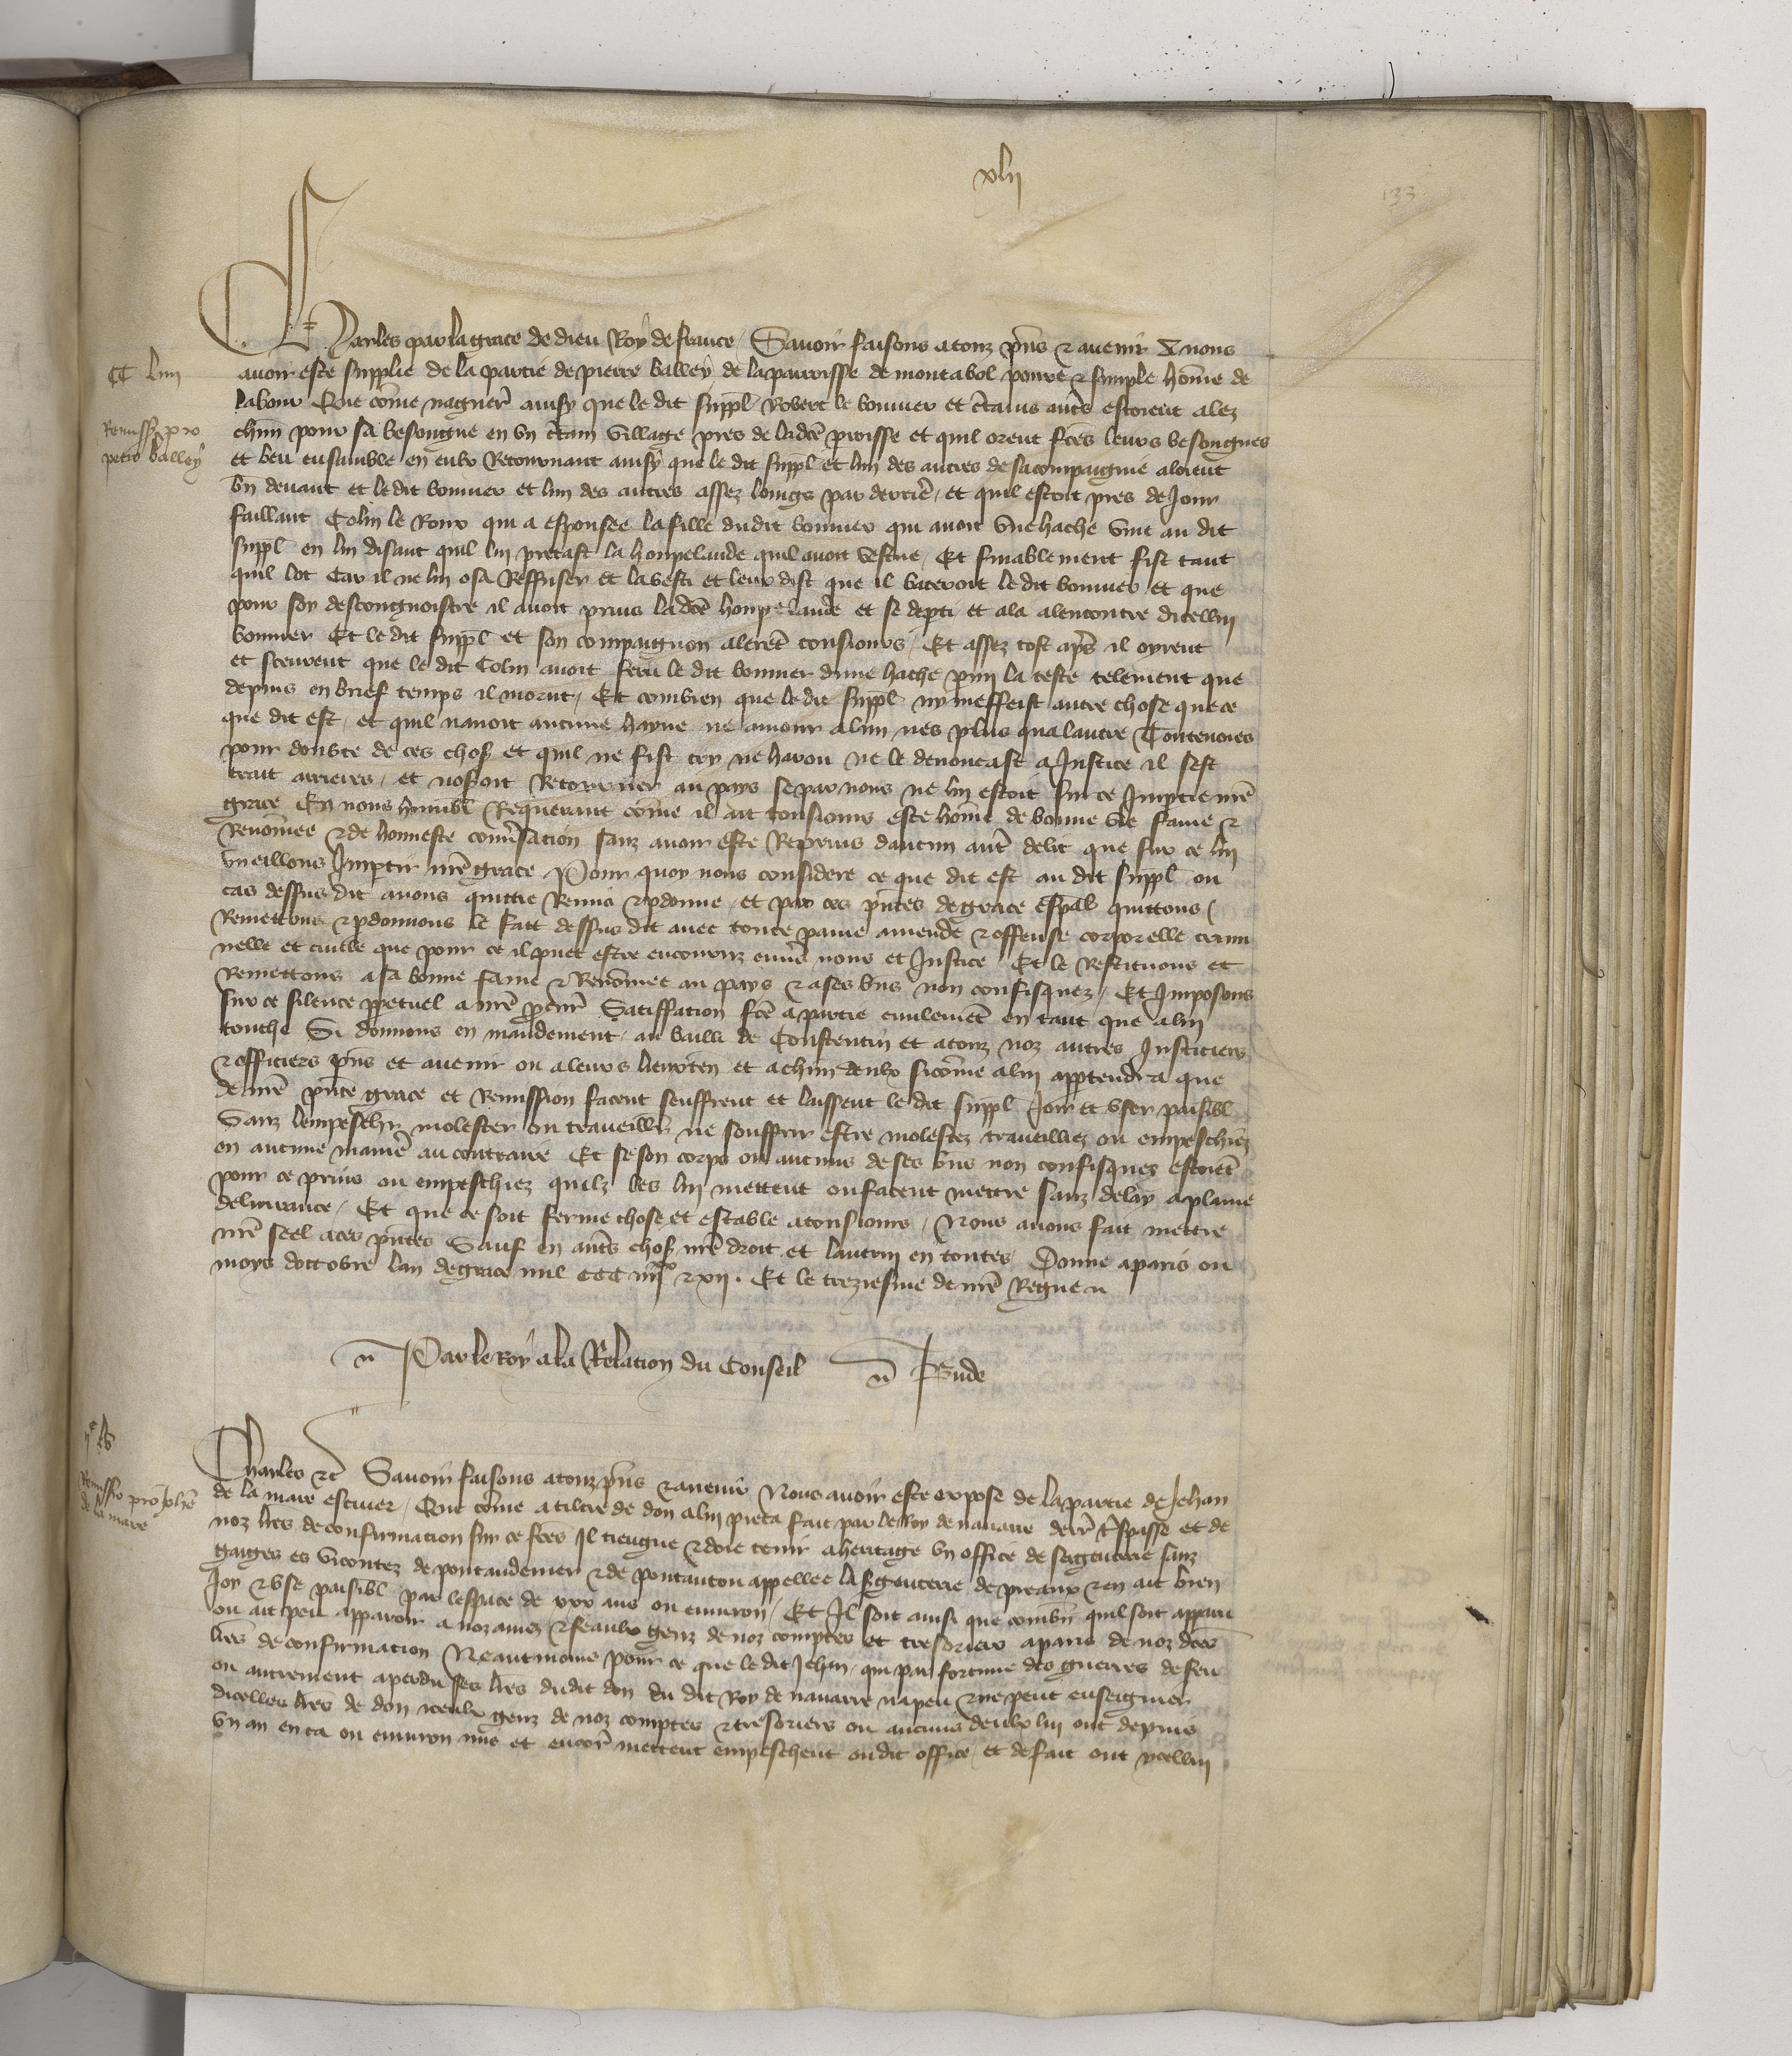 xlii
133
Charles par la grace de dieu Roy de france Savoir faisons a touz pñs & avenir nous
CC liiii
avoir este supplie de la partie de pierre balley de la parroisse de montabol povre & simple hõme de
labour Que cõme naguer̃ ainsy que le dit suppl̃ Robert le bouvier et c̃tains aut̃s estoient alez
Remissio pro
petro balley
chũn pour sa besongne en un c̃tain village pres de lad̃ce p̃roisse et quil orent fc̃es leurs besongnes
et beu ensamble en eulx Retournant ainsy que le dit suppl̃ et lun des autres de sa compaignie aloient
un devant et le dit bouvier et lun des autres assez loings par derrier̃ et quil estoit pres de Jour
faillant Colin le Roux qui a espousee la fille du dit bouvier qui avoit une hache vint au dit
suppl̃ en lui disant quil lui prestast la houpelande quil avoit vestue Et finablement fist tant
quil lot Car il ne lui osa Reffuser et la vesti et leur dist que il bateroit le dit bouvier et que
pour soy descongnoistre il avoit prins la dc̃e houppelande et se dep̃ti et ala alencontre dicellui
bouvier Et le dit suppl̃ et son compaignon alerẽt tousiours Et assez tost ap̃s il oyrent
et sceurent que le dit Colin avoit feru le dit bouvier dune hache p̃mi la teste telement que
depuis en brief temps il morut Et combien que le dit suppl̃ ny meffeist autre chose que ce
que dit est et quil navoit aucune hayne ne amour a lun nes plus qua lautre Toutevoies
pour doubte de ces chos̃ et quil ne fist cry ne harou ne le denoncast a Justice il sest
trait arrieres et nosoit Retourner au pays se par nous ne lui estoit sur ce Imp̃tie nr̃e
grace En nous humbl̃ Requerant cõme il ait tousiours este hõme de bonne vie fame &
Renõmee & de honneste conṽsacion sanz avoir este Reprins daucun aut̃ delit que sur ce lui
vueillons Imp̃tir nr̃e grace Pour quoy nous considere ce que dit est au dit suppl̃ ou
cas dessus dit avons quittie Remis & p̃donne et par ces p̃ntes de grace esp̃al quittons
Remettons & p̃donnons le fait dessus dit avec toute paine amende & offense corporelle crimi
nelle et civille que pour ce il puet estre encouruz env̂s nous et Justice Et le Restituons et
Remettons a sa bonne fame & Renõmee au pays & a ses bñs non confisquez Et Imposons
sur ce silence p̃petuel a nr̃e p̃cur̃ Satiffation fc̃e a partie civilemẽt en tant que a lui
touche Si donnons en mandement au bailli de Constentin et a touz noz autres Justiciers
& officiers p̃ns et avenir ou a leurs lieuxten̄ et a chũn deulx sicõme a lui app̃tendra que
de nr̃e p̃nte grace et Remission facent seuffrent et laissent le dit suppl̃ Joir et user paisibl̃
Sanz lempeschier molester ou traveillier ne souffrir estre molestez traveilliez ou empeschiez
en aucune manier̃ au contraire Et se son corps ou aucuns de ses bñs non confisquez estoiẽt
pour ce prins ou empeschiez quilz les lui mettent ou facent mettre sanz delay a plaine
delivrance Et que ce soit ferme chose et estable a tousiours Nous avons fait mettre
nr̃e seel a ces p̃ntes Sauf en aut̃s chos̃ nr̃e droit et lautruy en toutes Donne a paris ou
moys doctobre lan de grace mil CCC iiii xx & xii. Et le treziesme de nr̃e Regne
Par le Roy a la Relation du Conseil Bude
CC lv
Charles &c̃ Savoir faisons a touz p̃ns & avenir Nous avoir este expose de la partie de Jehan
Remissio pro Johẽ
de la mare
de la mare escuier Que cõme a tiltre de don a lui pieca fait par le Roy de navarre derr̃ t̃spasse et de
noz lr̃es de confirmation sur ce fc̃es Il tiengne & doie tenir a heritage un office de sergenterie sanz
gaiges es vicontez de pontaudemer & de pontautou appellee la s̃genterie de preaux & en ait bien
Joy & use paisibl̃ par lespace de xxx ans ou environ Et Il soit ainsi que combiẽ quil soit apparu
ou ait peu apparoir a noz amez & feaulx genz de noz comptes et tresoriers a paris de noz dc̃es
lr̃es de confirmation Neantmoins pour ce que le dit Jehan qui par fortune des guerres de feu
ou autrement a perdu ses lr̃es du dit don du dit Roy de navarre na peu & ne peut enseigner
dicelles lr̃es de don iceulx genz de noz comptes & tresoriers ou aucuns deulx lui ont depuis
un an en ca ou environ mis et encor̃ mettent empeschent ou dit office et de fait ont ycellui